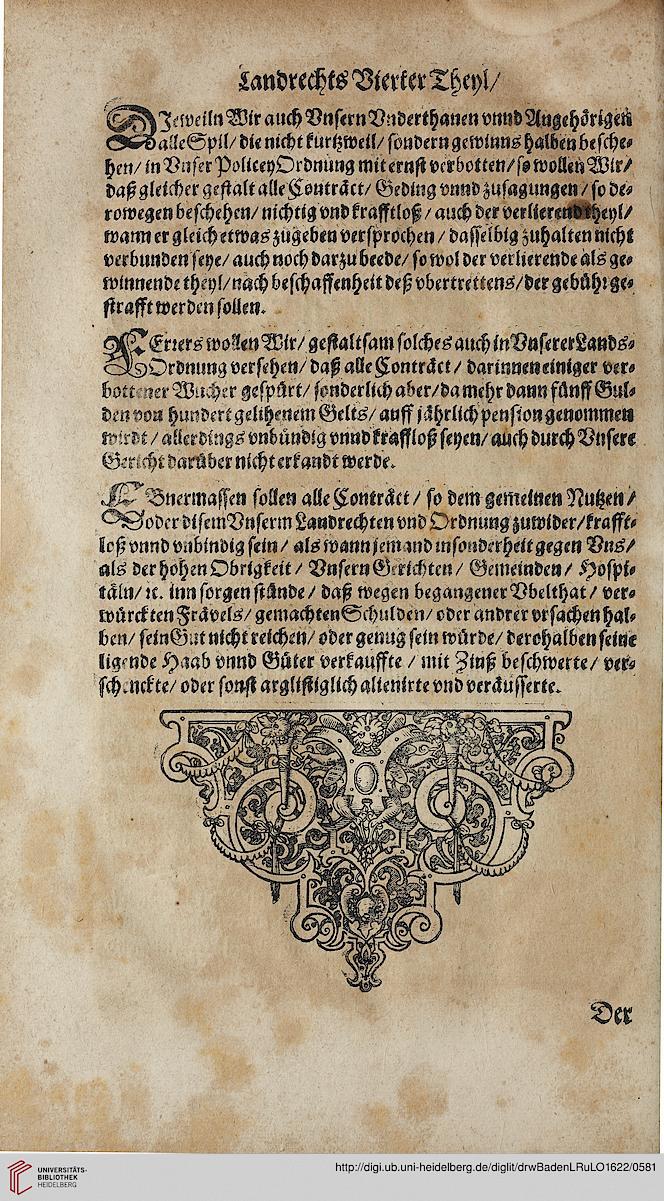 Landrechts Vierter Theyl/
DJeweiln Wir auch Vnsern Vnderthanen vnnd Angehörigen
alle Spil/ die nicht kurtzweil/ sondern gewinns halben besche-
hen/ in Vnser PoliceyOrdnung mit ernst verbotten/ so wollen Wir/
daß gleicher gestalt alle Conträct/ Geding vnnd zusagungen/ so de-
rowegen beschehen/ nichtig vnd krafftloß/ auch der verlierend theyl/
wann er gleich etwas zugeben versprochen/ dasselbig zuhalten nicht
verbunden seye/ auch noch darzu beede/ so wol der verlierende als ge-
winnende theyl/ nach beschaffenheit deß vbertrettens/ der gebühr ge-
strafft werden sollen.
FErrers wollen Wir/ gestaltsam solches auch in Vnserer Lands-
Ordnung versehen/ daß alle Conträct/ darinnen einiger ver-
bottener Wucher gespürt/ sonderlich aber/ da mehr dann fünff Gul-
den von hundert gelihenem Gelts/ auff jährlich pension genommen
wirdt/ allerdings vnbündig vnnd kraffloß seyen/ auch durch Vnsere
Gericht darüber nicht erkandt werde.
EBnermassen sollen alle Conträct/ so dem gemeinen Nutzen/
oder disem Vnserm Landrechten vnd Ordnung zuwider/ krafft-
loß vnnd vnbindig sein/ als wann jemand insonderheit gegen Vns/
als der hohen Obrigkeit/ Vnsern Gerichten/ Gemeinden/ Hospi-
täln/ ꝛc. inn sorgen stünde/ daß wegen begangener Vbelthat/ ver-
würckten Frävels/ gemachten Schulden/ oder andrer vrsachen hal-
ben/ sein Gut nicht reichen/ oder genug sein würde/ derohalben seine
ligende Haab vnnd Güter verkauffte/ mit Zinß beschwerte/ ver-
schenckte/ oder sonst arglistiglich alienirte vnd veräusserte.
Der
UNIVERSITÄTS-
BIBLIOTHEK
HEIDELBERG
http://digi.ub.uni-heidelberg.de/diglit/drwBadenLRuLO1622/0581